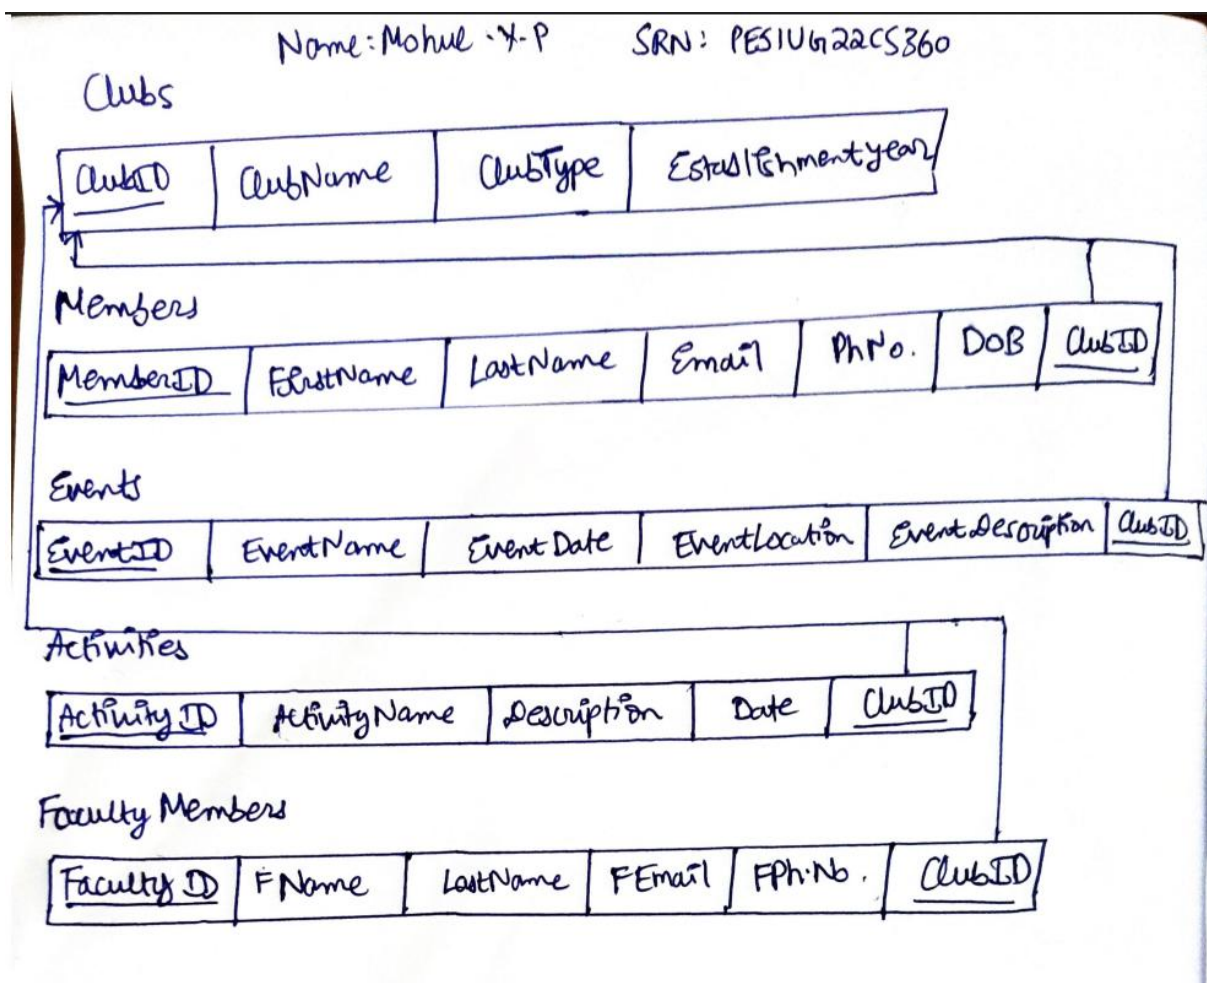 Name: Mohul .Y.P SRN: PES1UG22CS360
Clubs
ClubID ClubName ClubType Establishmentyear
Members
MemberID FirstName LastName Email PhNo. DOB ClubID
Events
EventID EventName Event Date EventLocation Event Description ClubID
Activities
Activity ID ActivityName Description Date ClubID
Faculty Members
Faculty ID FName LastName FEmail FPh.No. ClubID